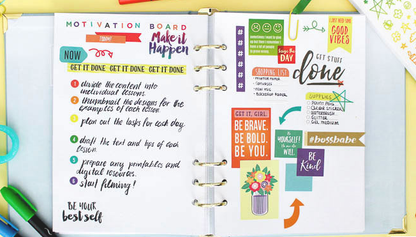 MOTIVATION BOARD
Make it
Happen
NOW
GET IT DONE GET IT DONE GET IT DONE
1 divide the content into
individual lessons.
2 thumbnail the designs for the
examples of each lesson.
3 plan out the tasks for each day.
4 draft the text and tips of each
lesson.
5 prepare any printables and
digital resources.
6 start filming!
BE YOUR
best self
GOOD
VIBES
DAY
GET STUFF
done
SHOPPING LIST
SUPPLIES
GLITTER
GEL MEDIUM
GET IT, GIRL
BE BRAVE.
BE BOLD.
BE YOU.
BE
YOURSELF
#bossbabe
BE
Kind